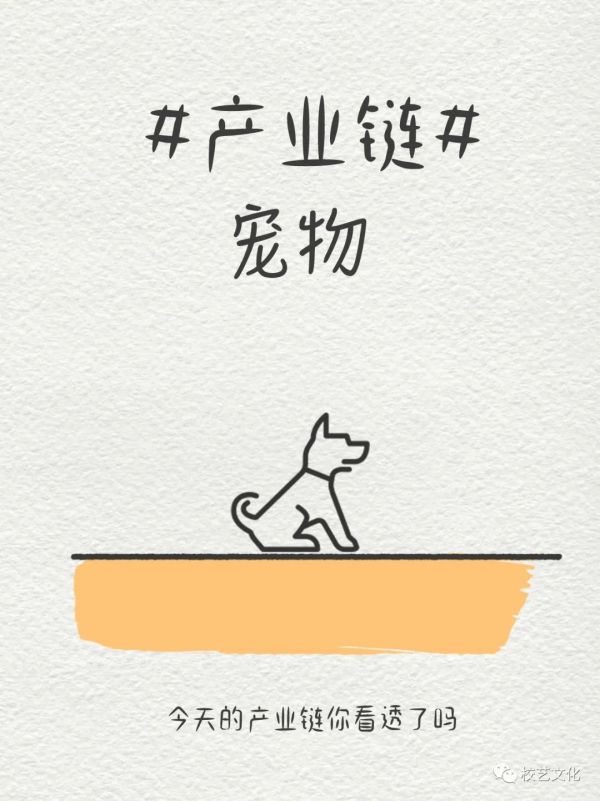 #产业链#
宠物
今天的产业链你看透了吗
校艺文化